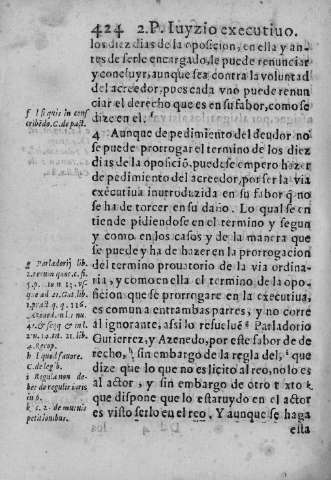 424 2.P. Iuyzio executiuo.
los diez dias de la oposicion, en ella y an-
tes de serle encargado, le puede renunciar
y concluyr, aunque sea contra la voluntad
del acreedor, pues cada vno puede renun
ciar el derecho que es en su fabor, como se
dize en el; f
4 Aunque de pedimiento del deudor no
se puede prorrogar el termino de los diez
dias de la oposiciō, puedese empero hazer
de pedimiento del acreedor, por ser la via
executiua inutroduzida en su fabor q̃ no
se ha de torcer en su daño. Lo qual se en
tiende pidiendose en el termino y segun
y como en los casos y de la manera que
se puede y ha de hazer en la prorrogacion
del termino prouatorio de la via ordina-
ria, y como en ella el termino de la opo-
sicion que se prorrogare en la executiua,
es comun a entrambas partes, y no corre
al ignorante, assi lo resuelue g Parladorio
Gutierrez, y Azenedo, por este fabor de de
recho, h sin embargo de la regla del, i que
dize que lo que no es licito al reo, no lo es
al actor, y sin embargo de otro txto k
que dispone que lo estatuydo en el actor
es visto serlo en el reo. Y aunque se haga
esta
f l si quis in cons
cribēdo. C. de pact.
g Parladorij lib.
2. rerum quot. c. fi.
5. p.
que ad
1. pract. q. q. 116.
l. 1. nu
4.
2. n. 19. tit. 21. lib.
4. Recop.
h l quod fauore.
C. de leg b.
i Regula non de-
bet de regul iuris
in 6.
k c. 2. de mutuis
petitionibus.